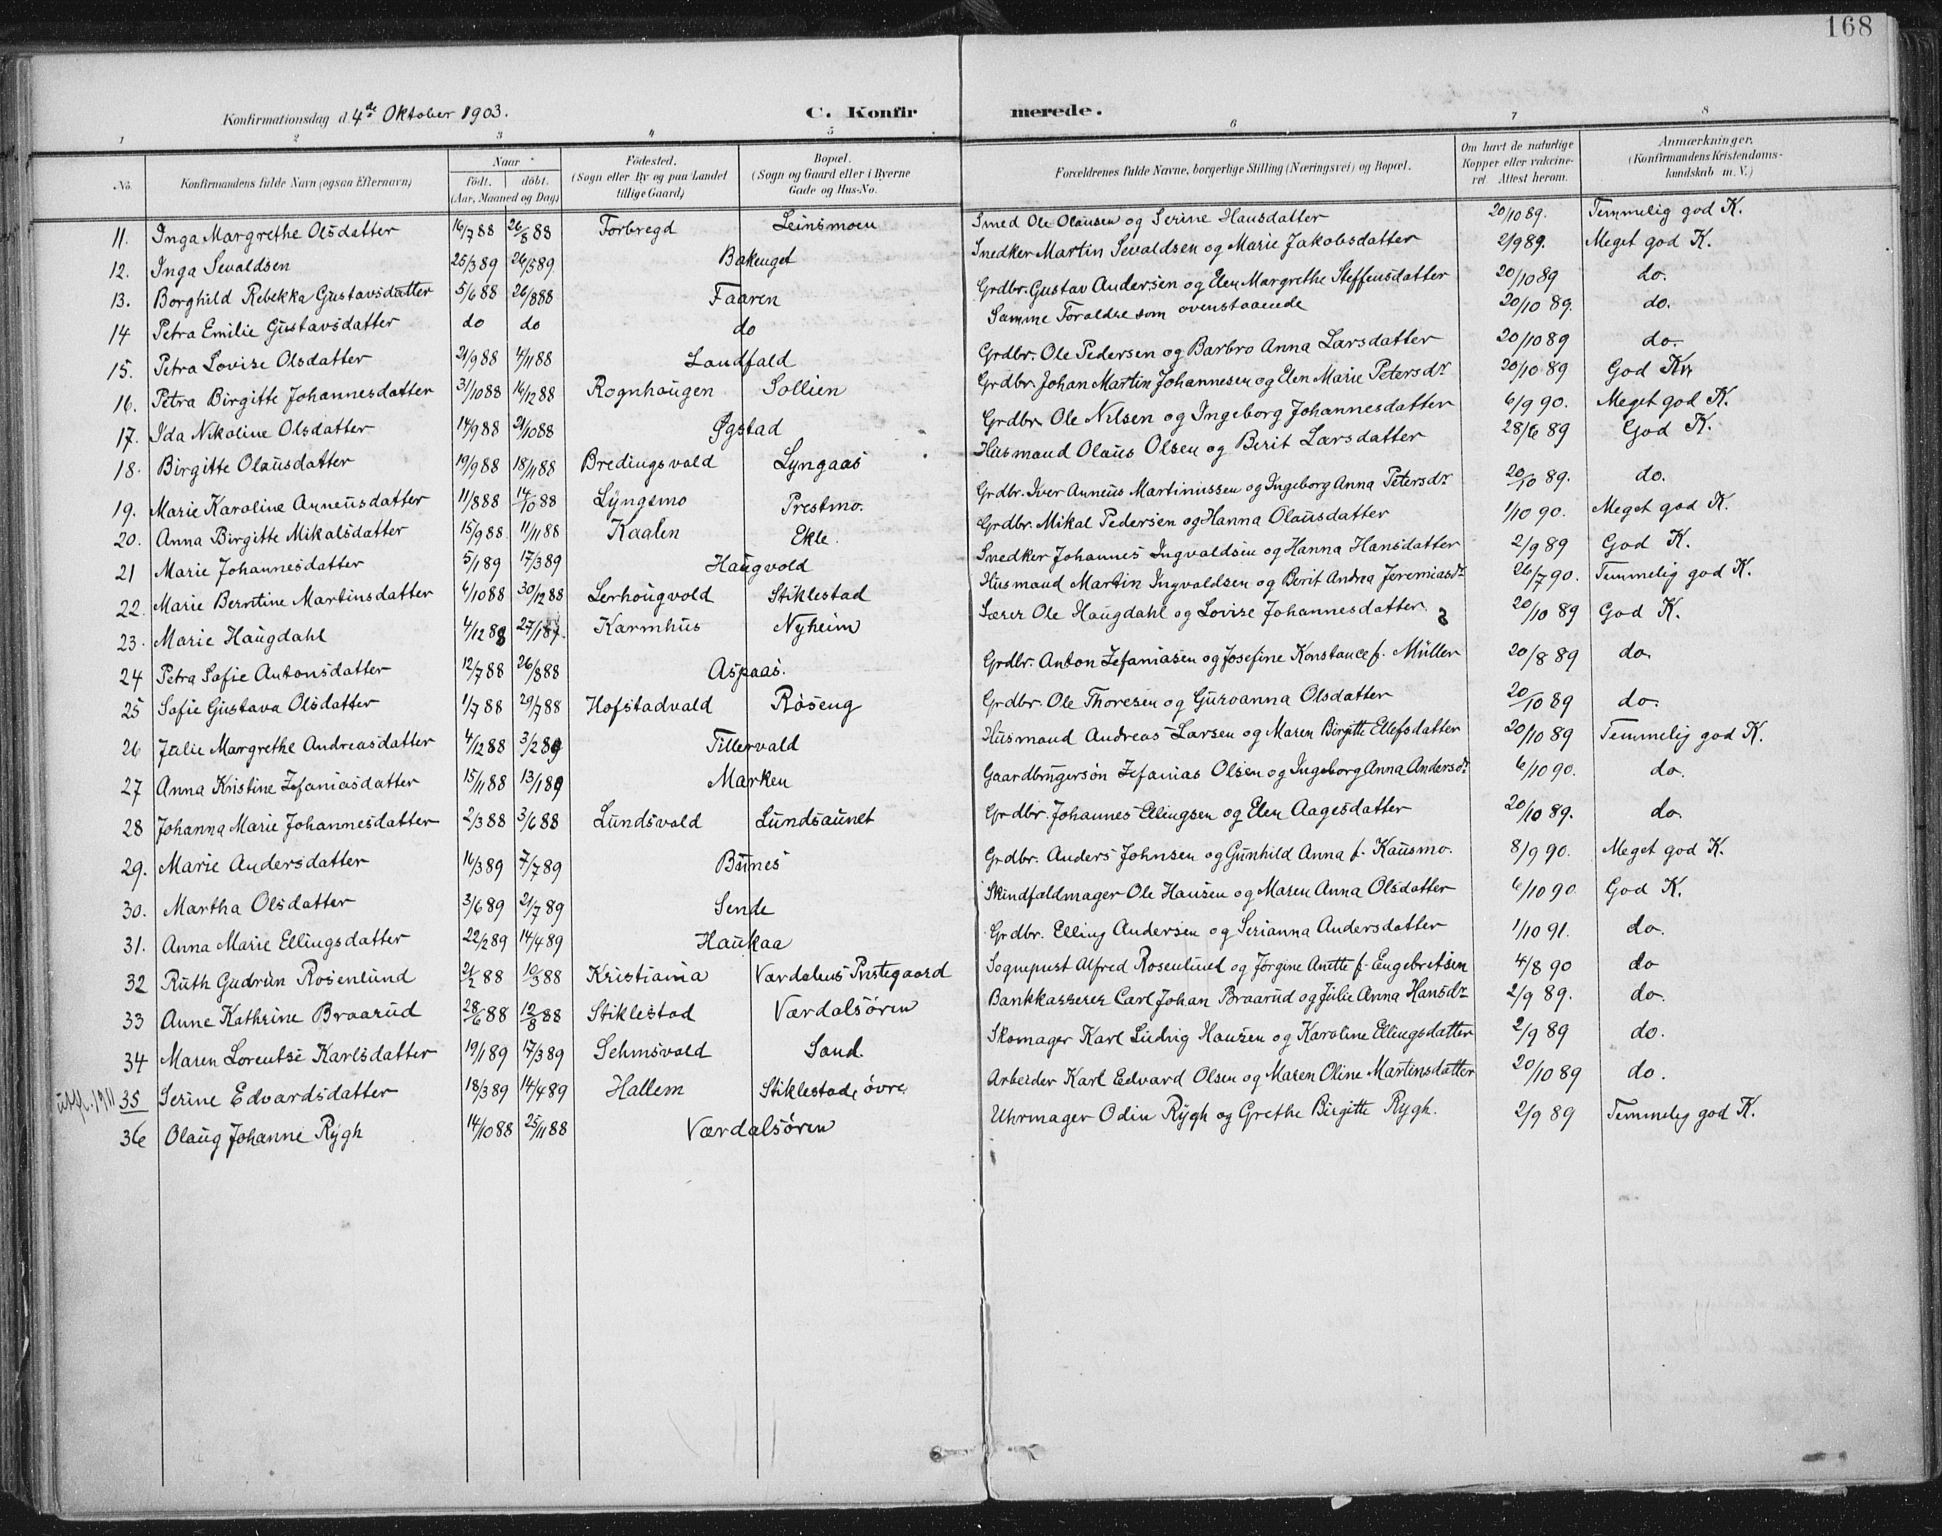 168
Konfirmationsdag d. 4de Oktober 1903. C. Konfirmerede.
1 2 3 4 5 6 7 8
No. Konfirmandens fulde Navn (ogsaa Efternavn) Naar födt. döbt. (Aar, Maaned og Dag) Födested. (Sogn eller By og paa Landet tillige Gaard) Bopæl. (Sogn og Gaard eller i Byerne Gade og Hus-No. Forældrenes fulde Navne, borgerlige Stilling (Næringsvei) og Bopæl. Om havt de naturlige Kopper eller vakcineret. Attest herom. Anmærkninger. (Konfirmandens Kristendomskundskab m. V.)
11. Inga Margrethe Olsdatter 16/7 88 26/8 88 Forbregd Leinsmoen Smed Ole Olausen og Serine Hansdatter 20/10 89. Temmelig god K.
12. Inga Sevaldsen 25/3 89 26/5 89 Bakenget Snedker Martin Sevaldsen og Marie Jakobsdatter 2/9 89. Meget god K.
13. Borghild Rebekka Gustavsdatter 5/6 88 26/8 88 Faaren Grdbr. Gustav Andersen og Elen Margrethe Steffensdatter 20/10 89 do.
14 Petra Emilie Gustavsdatter do do do Samme Foraldre som ovenstaaende 20/10 89. do.
15. Petra Lovise Olsdatter 21/9 88 4/11 88 Landfald Grdbr. Ole Pedersen og Barbro Anna Larsdatter 20/10 89 do.
16. Petra Birgitte Johannesdatter 31/10 88 16/12 88 Rognhaugen Sollien Grdbr. Johan Martin Johannesen og Elen Marie Petersdr 20/10 89 God K
17. Ida Nikoline Olsdatter 14/9 88 21/10 88 Øgstad Grdbr. Ole Nilsen og Ingeborg Johannesdatter 6/9 90. Meget god K.
18. Birgitte Olausdatter 19/9 88 18/11 88 Bredingsvald Lyngaas Husmand Olaus Olsen og Berit Larsdatter 28/6 89 God K.
19. Marie Karoline Anneusdatter 11/8 88 14/10 88 Lyngsmo Prestmo. Grdbr. Iver Anneus Martinussen og Ingeborg Anna Petersdr 20/10 89. do.
20. Anna Birgitte Mikalsdatter 15/9 88. 11/11 88 Kaalen Ekle. Grdbr. Mikal Pedersen og Hanna Olausdatter 1/10 90. Meget god K.
21 Marie Johannesdatter 5/1 89 17/3 89 Haugvold Snedker Johannes Ingvaldsen og Hanna Hansdatter 2/9 89 God K.
22. Marie Berntine Martinsdatter 4/10 88 30/12 88 Lerhougvold Stiklestad Husmand Martin Ingvaldsen og Berit Andrea Jeremiasdr 26/7 90. Temmelig god K.
23. Marie Haugdahl 4/12 88 27/1 89. Karmhus Nyheim Lærer Ole Haugdahl og Lovise Johannesdatter 20/10 89 God K.
24 Petra Sofie Antonsdatter 12/7 88 26/8 88 Aspaas. Grdbr. Anton Zefaniasen og Josefine Konstance f. Müller 20/8 89 do.
25 Sofie Gustava Olsdatter 1/7 88 29/7 88 Hofstadvald Röseng Grdbr. Ole Thoresen og Guroanna Olsdatter 20/10 89 do.
26 Julie Margrethe Andreasdatter 4/12 88 3/2 89 Tillervald Husmand Andreas Larsen og Maren Birgitte Ellefsdatter 20/10 89 Temmelig god K.
27 Anna Kristine Zefaniasdatter 15/11 88 13/1 89 Marken Gaardbrugersön Zefanias Olsen og Ingeborg Anna Andersdr 6/10 90. do.
28 Johanna Marie Johannesdatter 2/3 88 3/6 88 Lundsvald Lundsaunet Grdbr. Johannes Ellingsen og Elen Aagesdatter 20/10 89. do
29. Marie Andersdatter 16/3 89 7/7 89 Bunes Grdbr. Anders Johnsen og Gunhild Anna f. Kausmo. 8/9 90. Meget god K.
30. Martha Olsdatter 3/6 89 21/7 89 Sende Skindfaldmager Ole Hansen og Maren Anna Olsdatter 6/10 90 God K.
31. Anna Marie Ellingsdatter 22/2 89 14/4 89 Haukaa Grdbr. Elling Andersen og Serianna Andersdatter 1/10 91. do.
32 Ruth Gudrun Rosenlund 21/2 88 10/3 88 Kristiania Værdalens Prstegaard Sogneprest Alfred Rosenlund og Jörgine Anette f. Engebretsen 4/8 90 do
33 Anne Kathrine Braarud 28/6 88 12/8 88 Stiklestad Værdalsören Bankkasserer Carl Johan Braarud og Julie Anna Hansdr 2/9 89. do.
34 Maren Lorentse Karlsdatter 19/1 89 17/3 89 Sehmsvald Sand. Skomager Karl Ludvig Hansen og Karoline Ellingsdatter 2/9 89 do.
utfl. 1911 35 Serine Edvardsdatter 18/3 89 14/4 89 Hallem Stiklestad, øvre Arbeider Karl Edvard Olsen og Maren Oline Martinsdatter 20/10 89 do.
36 Olaug Johanne Rygh 14/10 88 25/11 88 Værdalsören Uhrmager Odin Rygh og Grethe Birgitte Rygh. 2/9 89 Temmelig god K.